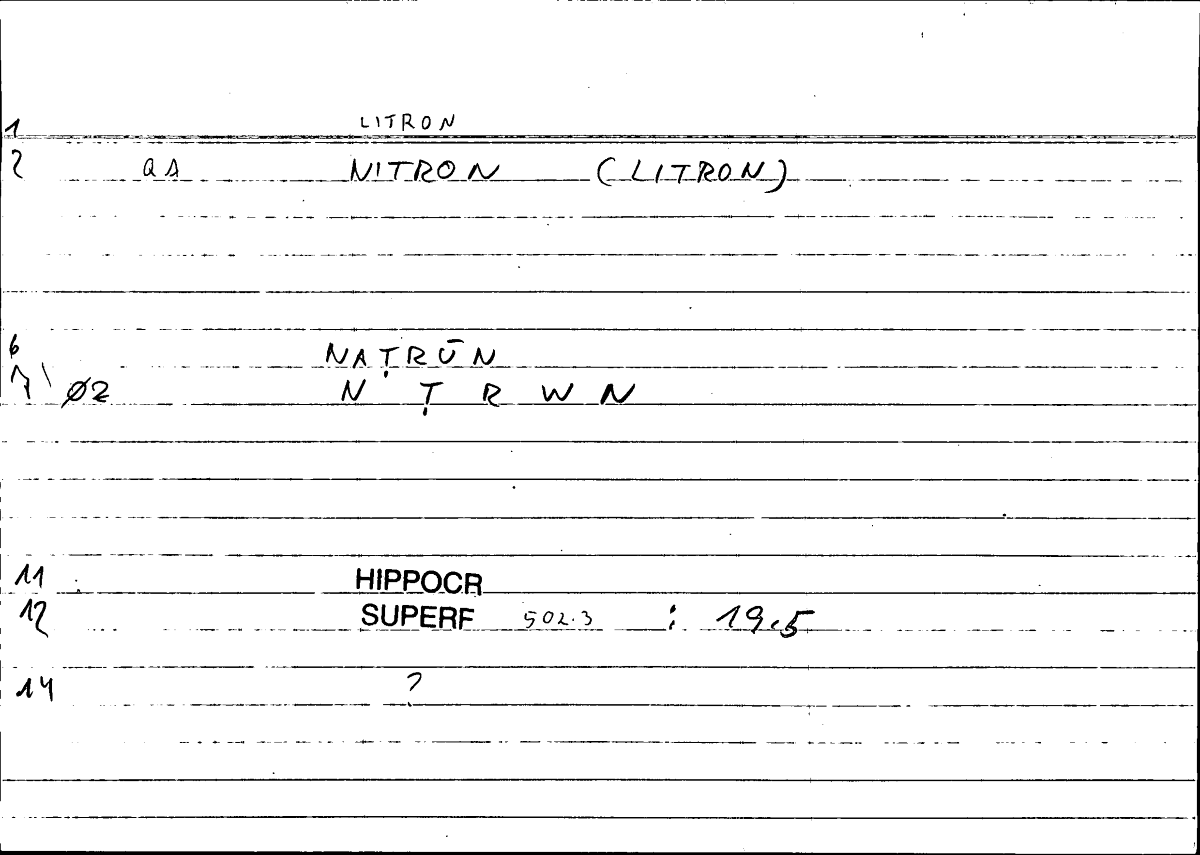 1 LITRON
2 QA NITRON (LITRON)
6 NAṬRŪN
7 \ Ø2 N Ṭ R W N
11 HIPPOCR
12 SUPERF 502.3 : 19.5
14 ?